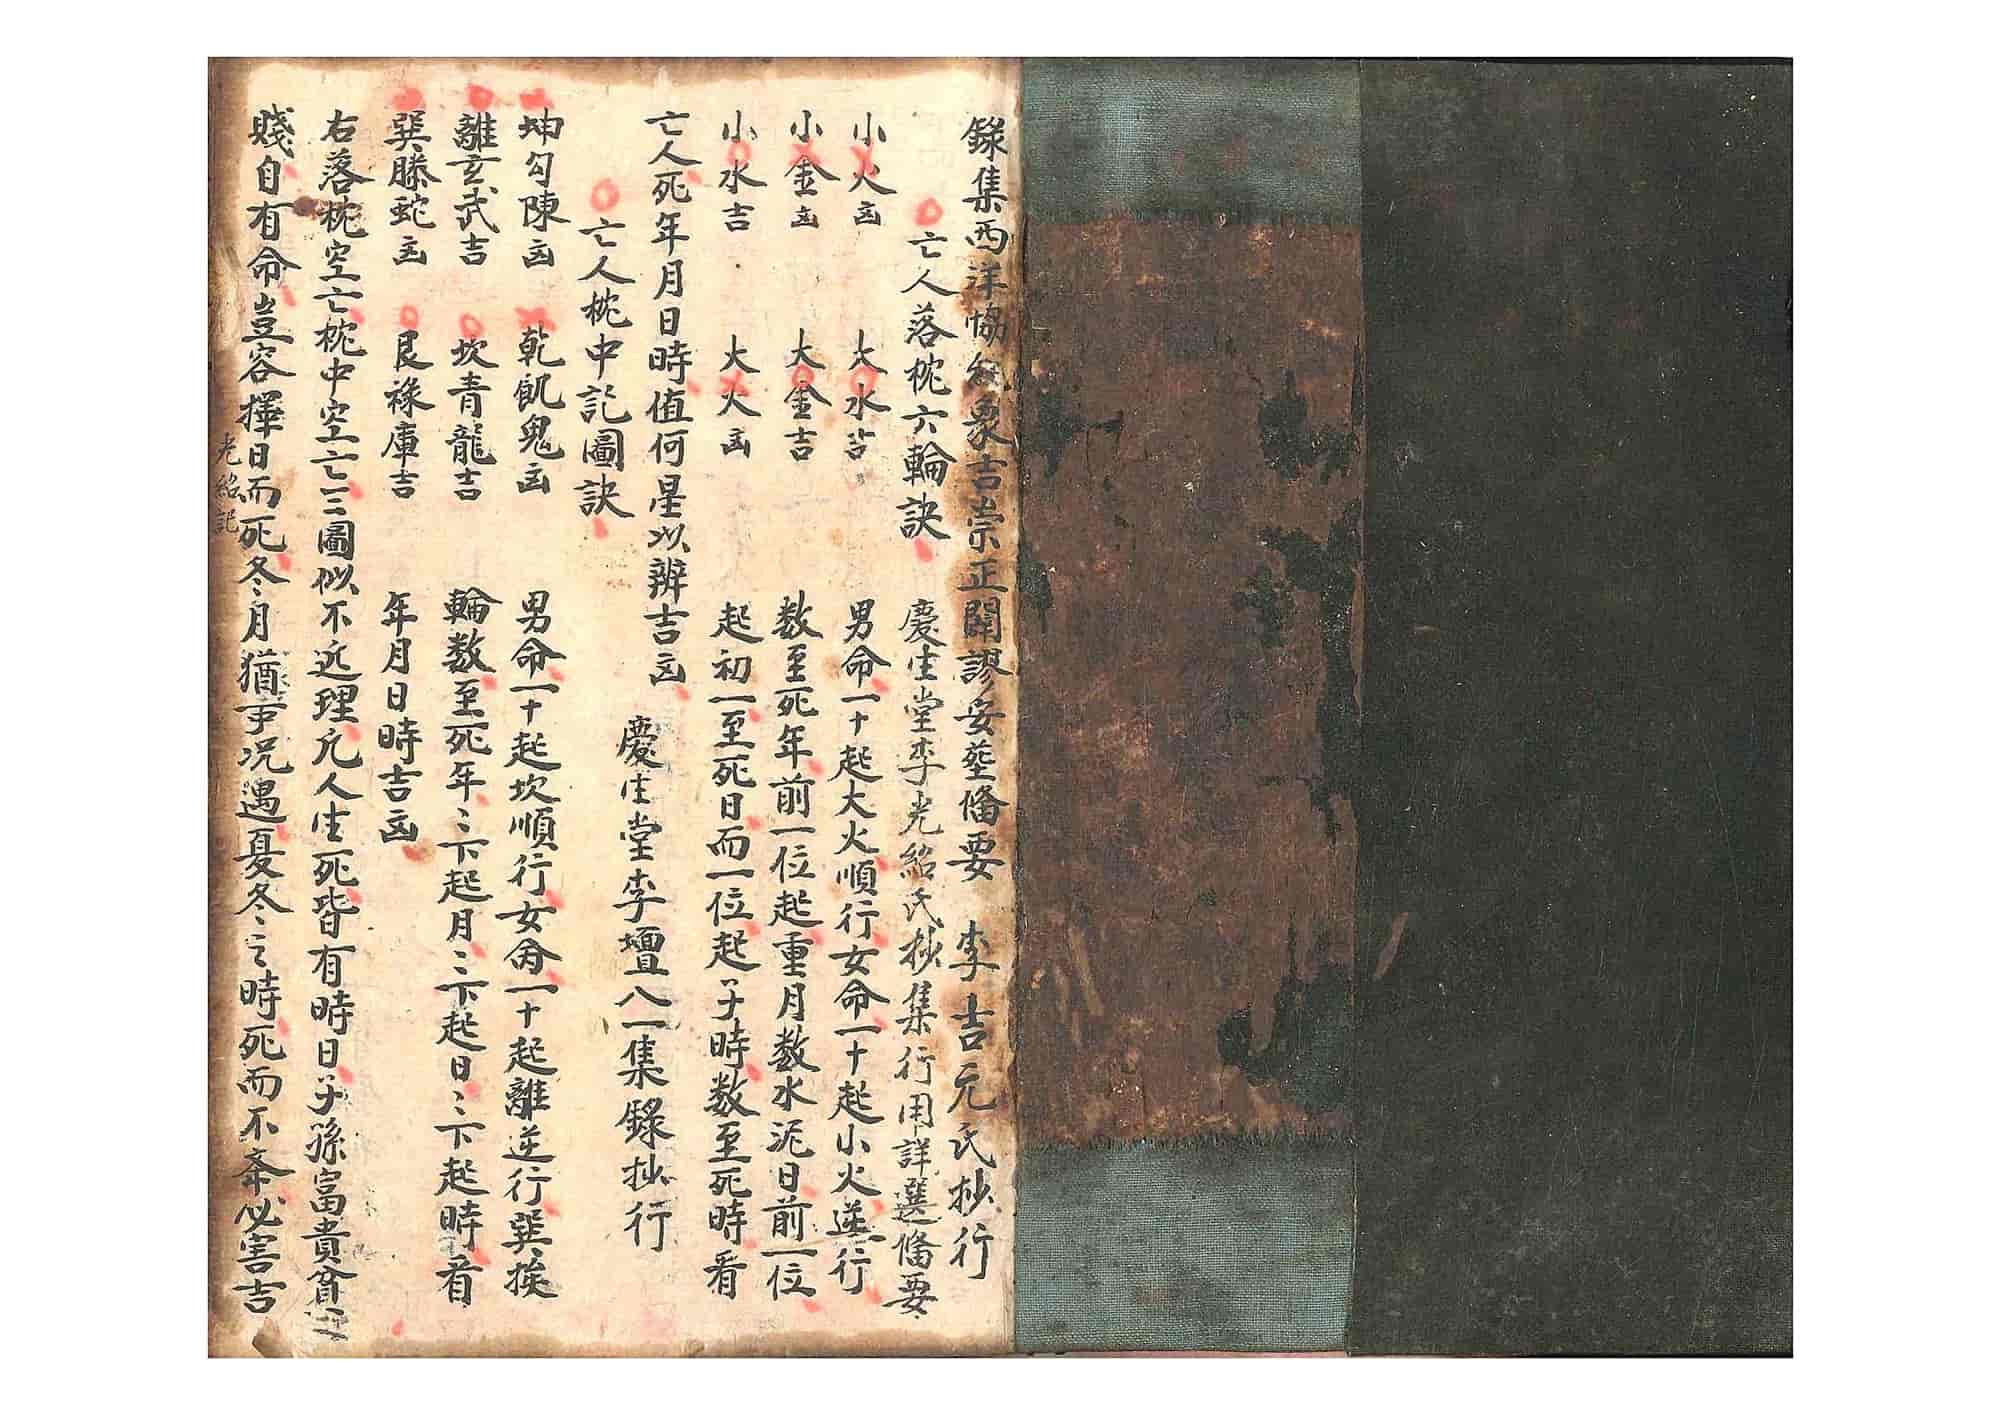 錄集西洋協紀象吉崇正闢謬安葬俻要 李吉元氏抄行
亡人落枕六輪訣 慶生堂李光紹氏抄集行用詳選俻要
小火凶 大水吉 男命一十起大火順行女命一十起小火逆行
小金凶 大金吉 数至死年前一位起重月数水泥日前一位
小水吉 大火凶 起初一至死日而一位起子時数至死時看
亡人死年月日時值何星以辨吉凶 慶生堂李壇八一集錄抄行
亡人枕中記圖訣
坤勾陳凶 乾飢鬼凶 男命一十起坎順行女命一十起離逆行巽挨
離玄武吉 坎青龍吉 輪数至死年〻下起月〻下起日〻下起時看
巽螣蛇凶 艮祿庫吉 年月日時吉凶
右落枕空亡枕中空亡二圖似不近理凢人生死皆有時日子孫富貴貧
賤自有命豈容擇日而死冬月猶可况遇夏冬之時死而不奔必害吉
光紹記